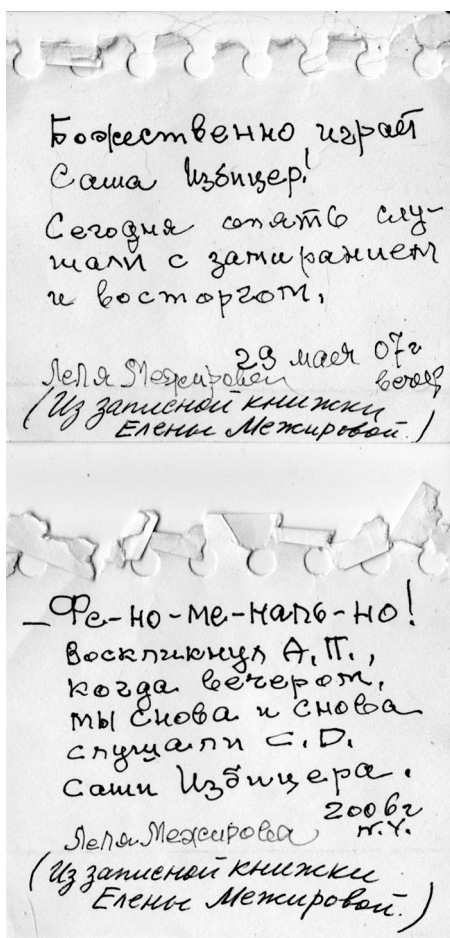 Божественно играет
Саша Избицер!
Сегодня опять слу-
шали с замиранием
и восторгом.
29 мая 07г
Леля Межирова вечер
(Из записной книжки
Елены Межировой.)
–Фе-но-ме-наль-но!
Воскликнул А.П.,
когда вечером,
мы снова и снова
слушали C.D.
Саши Избицера.
2006г
Леля Межирова N.Y.
(Из записной книжки
Елены Межировой.)